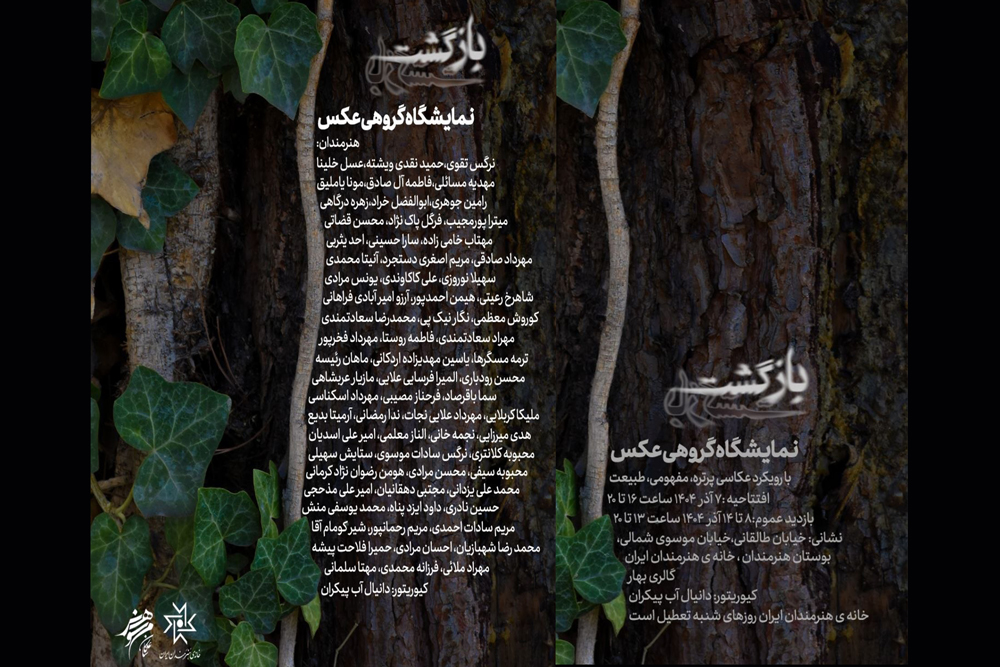 بازگشت
نمایشگاه گروهی عکس
هنرمندان:
نرگس تقوی،حمید نقدی ویشته،عسل خلینا
مهدیه مسائلی،فاطمه آل صادق،مونا یاملیق
رامین جوهری،ابوالفضل خراد،زهره درگاهی
میترا پورمجیب، فرگل پاک نژاد، محسن قضاتی
مهتاب خامی زاده، سارا حسینی، احد یثربی
مهرداد صادقی، مریم اصغری دستجرد، آنیتا محمدی
سهیلا نوروزی، علی کاکاوندی، یونس مرادی
شاهرخ رعیتی، هیمن احمدپور، آرزو امیر آبادی فراهانی
کوروش معظمی، نگار نیک پی، محمدرضا سعادتمندی
مهراد سعادتمندی، فاطمه روستا، مهرداد فخرپور
ترمه مسگرها، یاسین مهدیزاده اردکانی، ماهان رئیسه
محسن رودباری، المیرا فرسایی علایی، مازیار عربشاهی
سما باقرصاد، فرحناز مصیبی، مهرداد اسکناسی
ملیکا کربلایی، مهرداد علایی نجات، ندا رمضانی، آرمیتا بدیع
هدی میرزایی، نجمه خانی، الناز معلمی، امیر علی اسدیان
محبوبه کلانتری، نرگس سادات موسوی، ستایش سهیلی
محبوبه سیفی، محسن مرادی، هومن رضوان نژاد کرمانی
محمد علی یزدانی، مجتبی دهقانیان، امیر علی مذحجی
حسین نادری، داود ایزد پناه، محمد یوسفی منش
مریم سادات احمدی، مریم رحمانپور، شیر کومام آقا
محمد رضا شهبازیان، احسان مرادی، حمیرا فلاحت پیشه
مهراد ملائی، فرزانه محمدی، مهتا سلمانی
کیوریتور: دانیال آب پیکران
خانه‌ی هنرمندان ایران
بازگشت
نمایشگاه گروهی عکس
با رویکرد عکاسی پرتره، مفهومی، طبیعت
افتتاحیه :۷ آذر ۱۴۰۴ ساعت ۱۶ تا ۲۰
بازدید عموم:۸ تا ۱۴ آذر ۱۴۰۴ ساعت ۱۳ تا ۲۰
نشانی: خیابان طالقانی،خیابان موسوی شمالی،
بوستان هنرمندان ، خانه ی هنرمندان ایران
گالری بهار
کیوریتور: دانیال آب پیکران
خانه ی هنرمندان ایران روزهای شنبه تعطیل است